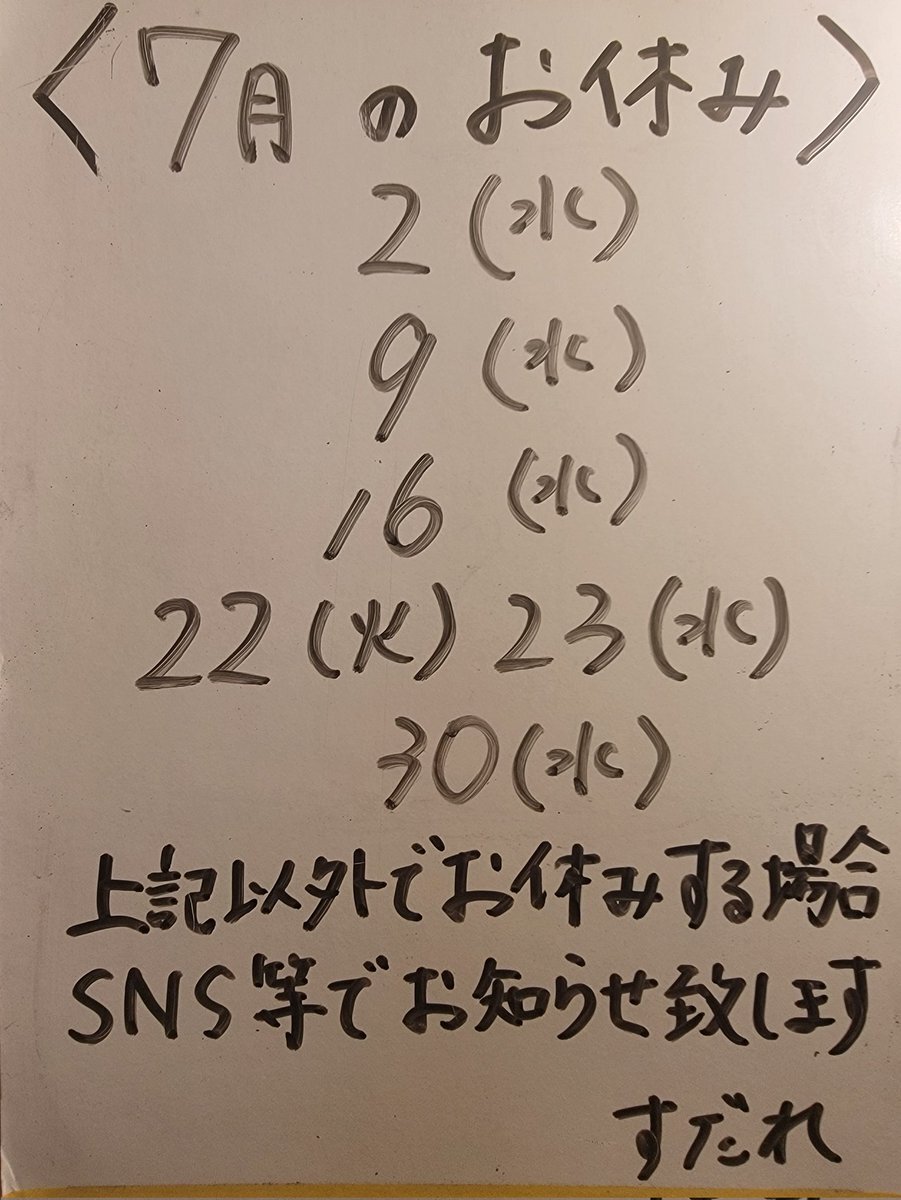 〈7月のお休み〉
2(水)
9(水)
16(水)
22(火) 23(水)
30(水)
上記以外でお休みする場合
SNS等でお知らせ致します
すだれ